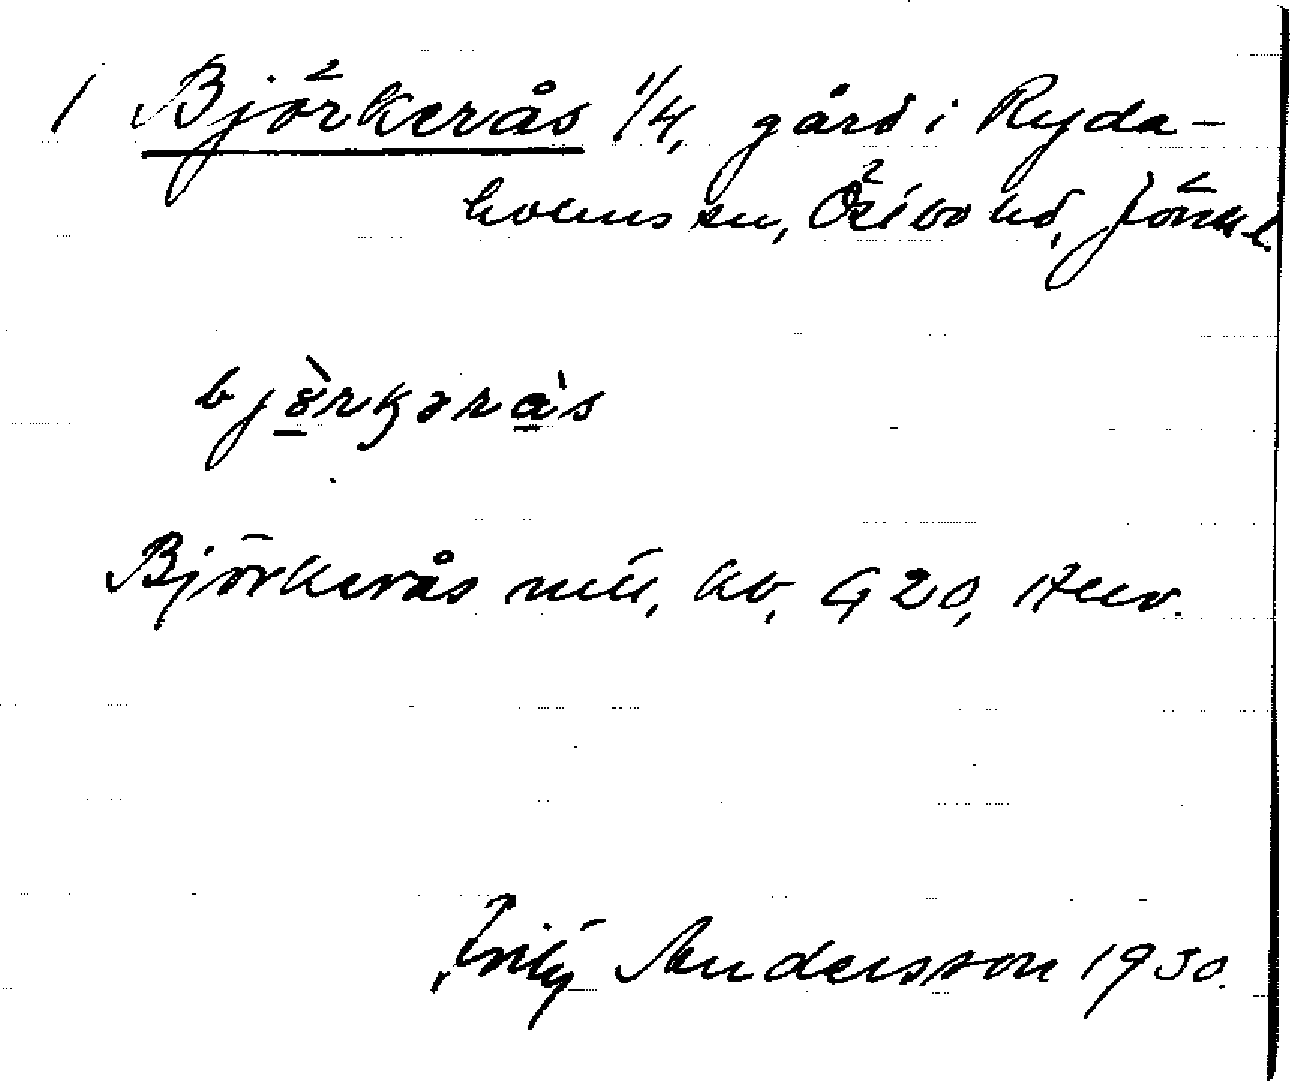 1 Björkerås 1/4, gård i Ryda-
holms sn, Östbo hd, Jönk. l.
bjö̀rkərás
Björkerås mtl, kb, G 20, Herv.
Frity Andersson 1930.